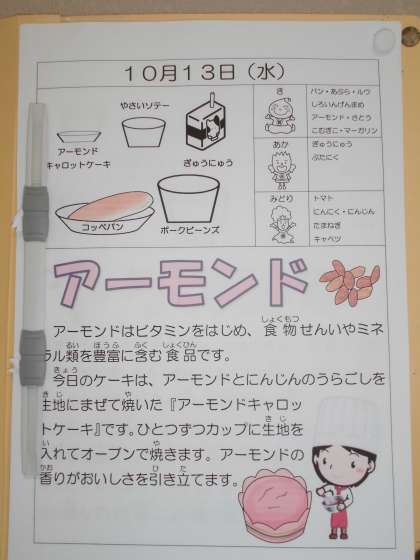 10月13日（水）
やさいソテー
アーモンド
キャロットケーキ
ぎゅうにゅう
コッペパン
ポークビーンズ
き
パン・あぶら・ルウ
しろいんげんまめ
アーモンド・さとう
こむぎこ・マーガリン
あか
ぎゅうにゅう
ぶたにく
みどり
トマト
にんにく・にんじん
たまねぎ
キャベツ
アーモンド
しょくもつ
アーモンドはビタミンをはじめ、食物せんいやミネ
るい ほうふ ふく しょくひん
ラル類を豊富に含む食品です。
きょう
今日のケーキは、アーモンドとにんじんのうらごしを
きじ や
生地にまぜて焼いた『アーモンドキャロッ
きじ
トケーキ』です。ひとつずつカップに生地を
い や
入れてオーブンで焼きます。アーモンドの
かお ひ た
香りがおいしさを引き立てます。